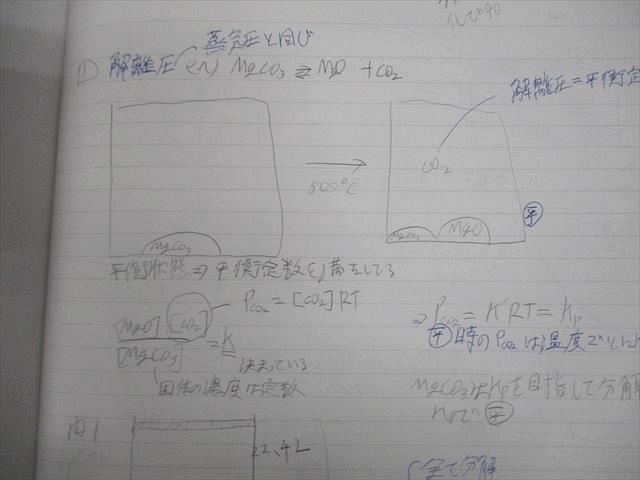 蒸気圧と同じ
① 解離圧 ex) MgCO3 ⇄ MgO + CO2
解離圧=平衡定
CO2
500°C
MgCO3
MgCO3
MgO
平
平衡状態⇒平衡定数を満たしてる
PCO2 = [CO2]RT
[MgO][CO2]/[MgCO3] = K
決まっている
固体の濃度は定数
⇒ PCO2 = K'RT = Kp
平時のPCO2は温度で
MgCO3はKpを目指して分解
平
問1
22.42
全て分解